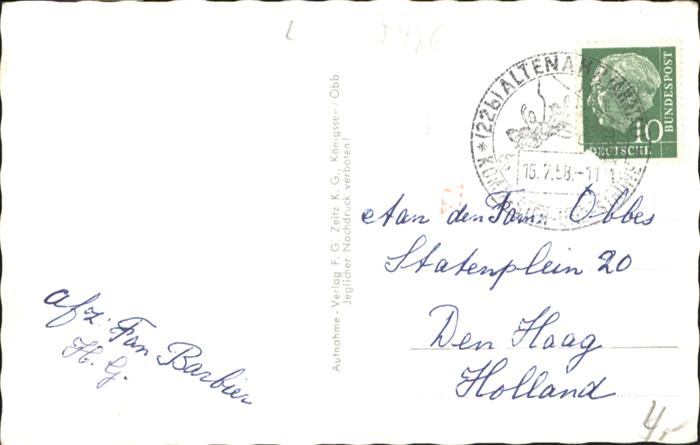 afz: Fam Barbier
H. G.
Aufnahme - Verlag F. G. Zeitz K. G., Königssee / Obb.
Jeglicher Nachdruck verboten!
(22b) ALTENAHR
16.7.58.-11
10
DEUTSCHE
BUNDESPOST
Aan den Fam. Obbes
Statenplein 20
Den Haag
Holland
4,-